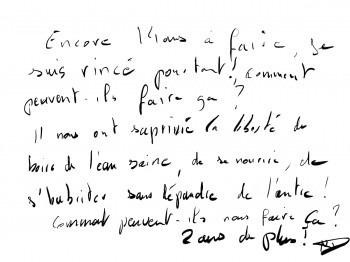 Encore 1Kons à faire, je
suis rincé pourtant! Comment
peuvent-ils faire ça?
Il nous ont supprimé la liberté de
boire de l'eau saine, de se nourrir, de
s'habiller sans dépendre de l'autre!
Comment peuvent-ils nous faire ça?
2 ans de plus!